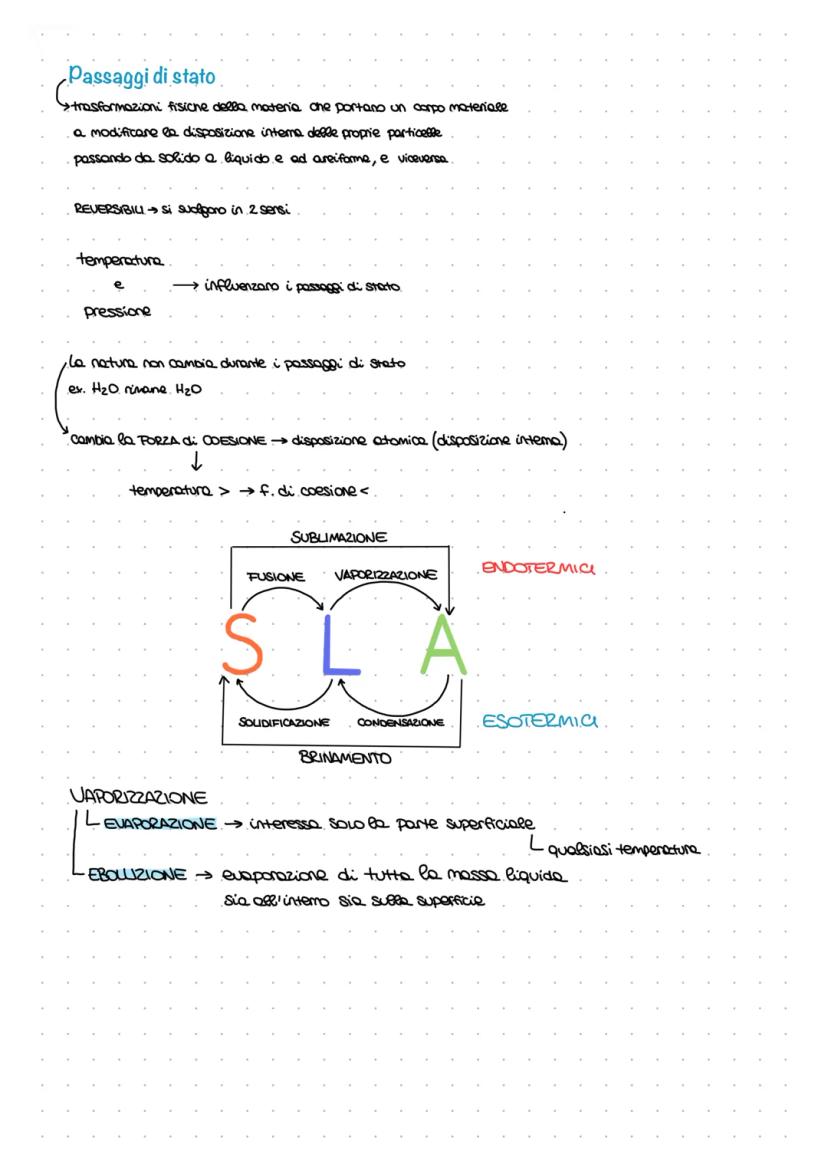 Passaggi di stato
trasformazioni fisiche della materia che portano un corpo materiale
a modificare la disposizione interna delle proprie particelle
passando da solido a liquido e ad areiforme, e viceversa
REVERSIBILI → si svolgono in 2 sensi
temperatura
e → influenzano i passaggi di stato
pressione
la natura non cambia durante i passaggi di stato
ex. H2O rimane H2O
cambia la FORZA di COESIONE → disposizione atomica (disposizione interna)
↓
temperatura > → f. di coesione <
SUBLIMAZIONE
FUSIONE VAPORIZZAZIONE ENDOTERMICI
S L A
SOLIDIFICAZIONE CONDENSAZIONE ESOTERMICI
BRINAMENTO
VAPORIZZAZIONE
EVAPORAZIONE → interessa solo la parte superficiale
qualsiasi temperatura
EBOLLIZIONE → evaporazione di tutta la massa liquida
sia all'interno sia sulla superficie